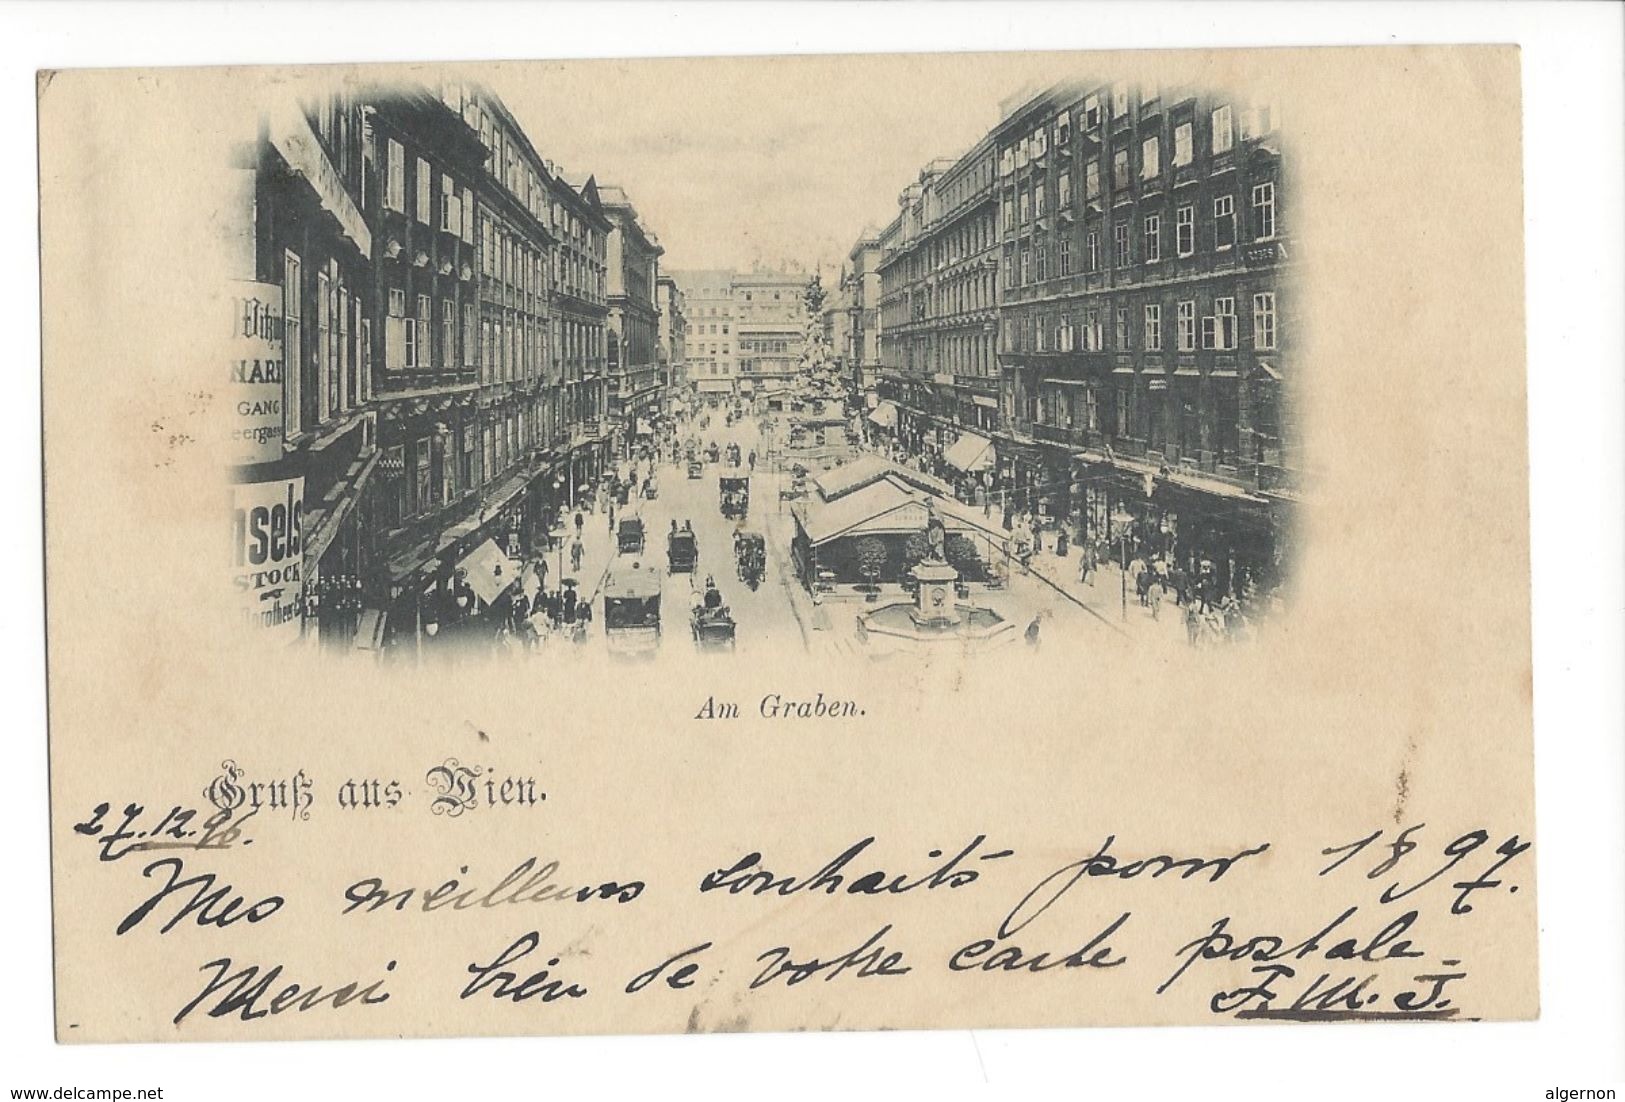 NAR
GANG
nsels
STOCK
Am Graben.
Gruß aus Wien.
27.12.96.
Mes meilleurs souhaits pour 1897.
Merci bien de votre carte postale.
F. M. J.
www.delcampe.net
algernon